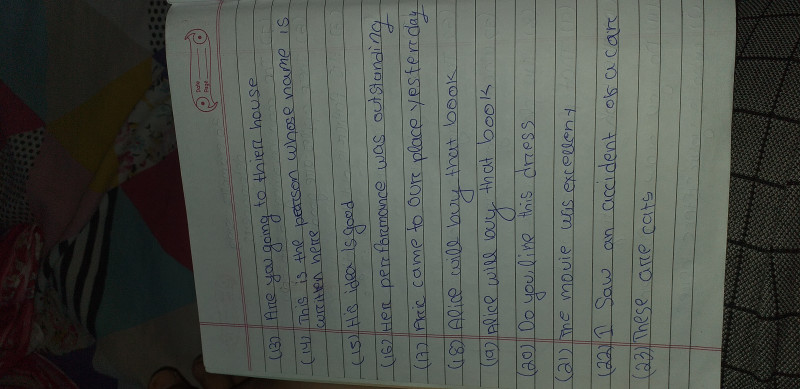 Date
Page
(13) Are you going to thier house
(14) This is the pearson whose name is
written here
(15) His idea is good
(16) Her performance was outstanding
(17) Are came to our place yesterday
(18) Alice will buy that book
(19) Alice will buy that book
(20) Do you like this dress
(21) The movie was excellent
(22) I saw an accident of a care
(23) These are cats